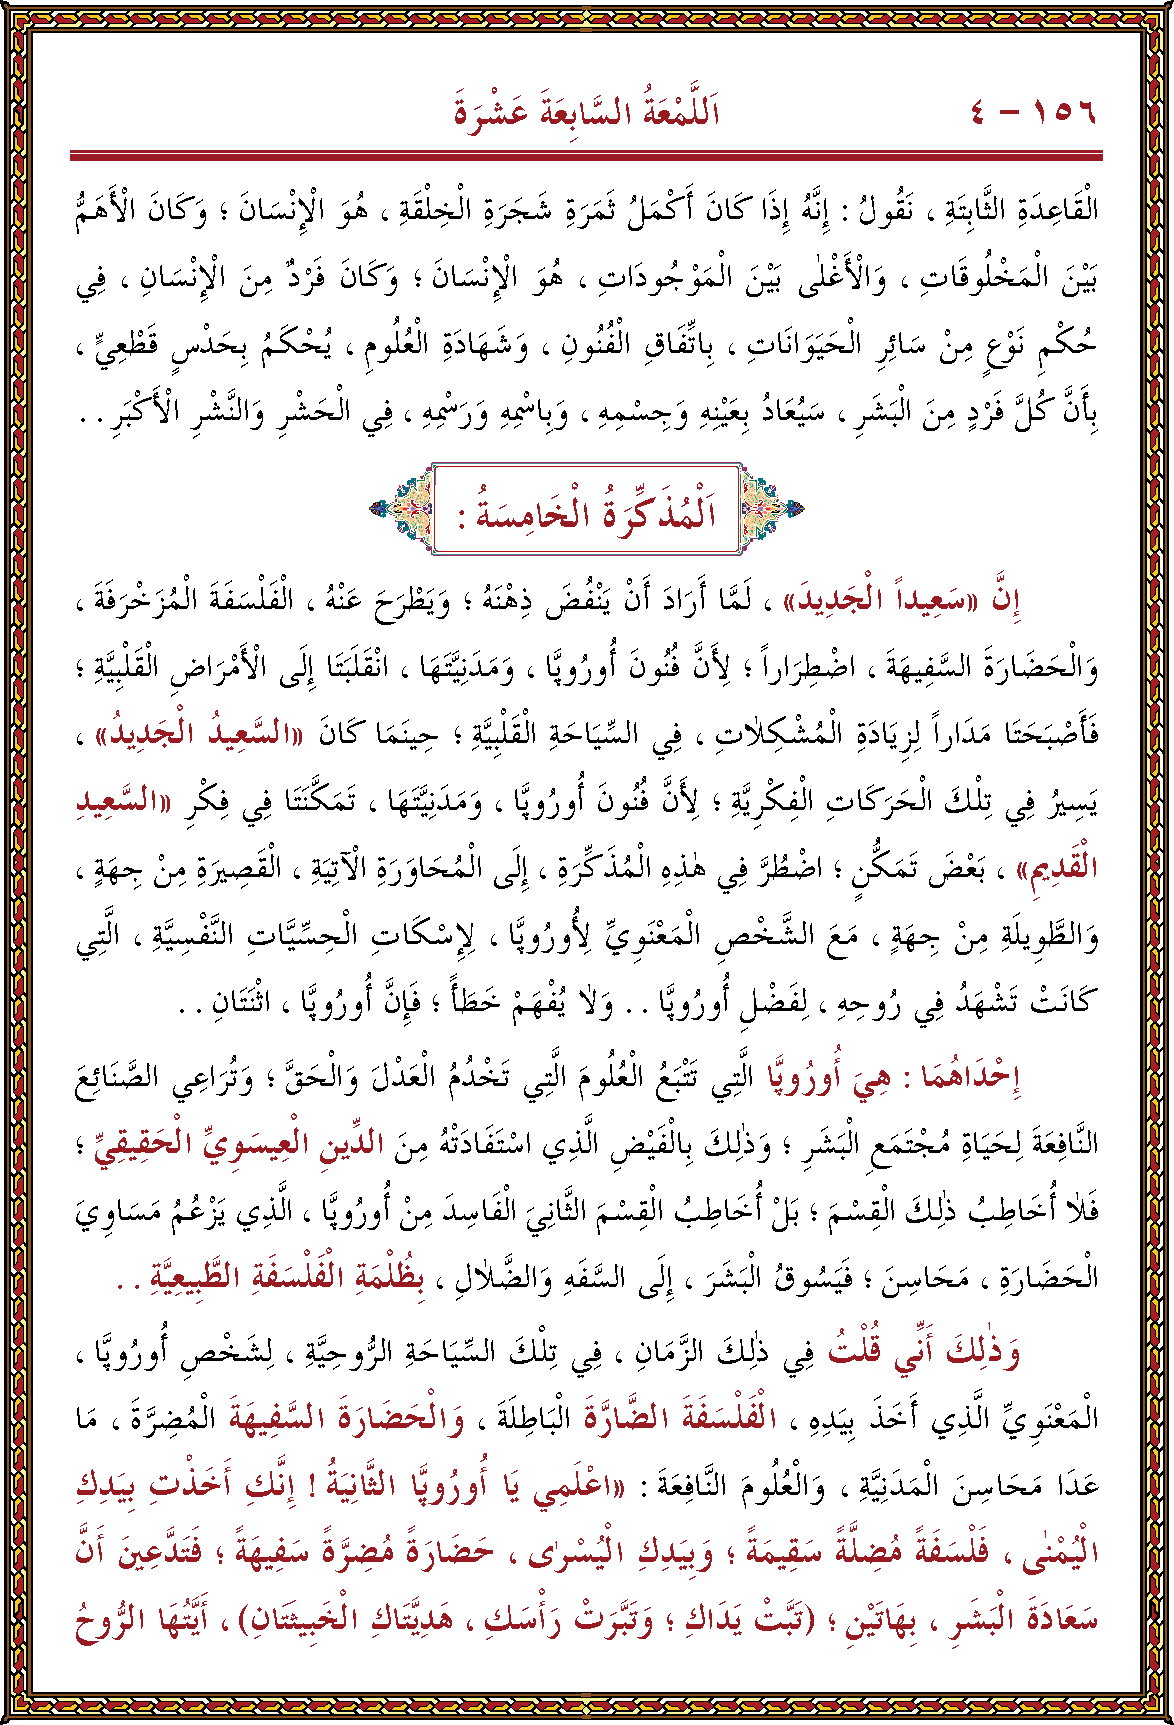 ١٥٦ – ٤ اَللَّمْعَةُ السَّابِعَةَ عَشْرَةَ
الْقَاعِدَةِ الثَّابِتَةِ ، نَقُولُ : إِنَّهُ إِذَا كَانَ أَكْمَلُ ثَمَرَةِ شَجَرَةِ الْخِلْقَةِ ، هُوَ الْإِنْسَانَ ؛ وَكَانَ الْأَهَمُّ
بَيْنَ الْمَخْلُوقَاتِ ، وَالْأَغْلٰى بَيْنَ الْمَوْجُودَاتِ ، هُوَ الْإِنْسَانَ ؛ وَكَانَ فَرْدٌ مِنَ الْإِنْسَانِ ، فِي
حُكْمِ نَوْعٍ مِنْ سَائِرِ الْحَيَوَانَاتِ ، بِاتِّفَاقِ الْفُنُونِ ، وَشَهَادَةِ الْعُلُومِ ، يُحْكَمُ بِحَدْسٍ قَطْعِيٍّ ،
بِأَنَّ كُلَّ فَرْدٍ مِنَ الْبَشَرِ ، سَيُعَادُ بِعَيْنِهِ وَجِسْمِهِ ، وَبِاسْمِهِ وَرَسْمِهِ ، فِي الْحَشْرِ وَالنَّشْرِ الْأَكْبَرِ . .
اَلْمُذَكِّرَةُ الْخَامِسَةُ :
إِنَّ «سَعِيداً الْجَدِيدَ» ، لَمَّا أَرَادَ أَنْ يَنْفُضَ ذِهْنَهُ ؛ وَيَطْرَحَ عَنْهُ ، الْفَلْسَفَةَ الْمُزَخْرَفَةَ ،
وَالْحَضَارَةَ السَّفِيهَةَ ، اضْطِرَاراً ؛ لِأَنَّ فُنُونَ أُورُوپَّا ، وَمَدَنِيَّتَهَا ، انْقَلَبَتَا إِلَى الْأَمْرَاضِ الْقَلْبِيَّةِ ؛
فَأَصْبَحَتَا مَدَاراً لِزِيَادَةِ الْمُشْكِلَاتِ ، فِي السِّيَاحَةِ الْقَلْبِيَّةِ ؛ حِينَمَا كَانَ «السَّعِيدُ الْجَدِيدُ» ،
يَسِيرُ فِي تِلْكَ الْحَرَكَاتِ الْفِكْرِيَّةِ ؛ لِأَنَّ فُنُونَ أُورُوپَّا ، وَمَدَنِيَّتَهَا ، تَمَكَّنَتَا فِي فِكْرِ «السَّعِيدِ
الْقَدِيمِ» ، بَعْضَ تَمَكُّنٍ ؛ اضْطُرَّ فِي هٰذِهِ الْمُذَكِّرَةِ ، إِلَى الْمُحَاوَرَةِ الْآتِيَةِ ، الْقَصِيرَةِ مِنْ جِهَةٍ ،
وَالطَّوِيلَةِ مِنْ جِهَةٍ ، مَعَ الشَّخْصِ الْمَعْنَوِيِّ لِأُورُوپَّا ، لِإِسْكَاتِ الْحِسِّيَّاتِ النَّفْسِيَّةِ ، الَّتِي
كَانَتْ تَشْهَدُ فِي رُوحِهِ ، لِفَضْلِ أُورُوپَّا . . وَلَا يُفْهَمْ خَطَأً ؛ فَإِنَّ أُورُوپَّا ، اثْنَتَانِ . .
إِحْدَاهُمَا : هِيَ أُورُوپَّا الَّتِي تَتْبَعُ الْعُلُومَ الَّتِي تَخْدُمُ الْعَدْلَ وَالْحَقَّ ؛ وَتُرَاعِي الصَّنَائِعَ
النَّافِعَةَ لِحَيَاةِ مُجْتَمَعِ الْبَشَرِ ؛ وَذٰلِكَ بِالْفَيْضِ الَّذِي اسْتَفَادَتْهُ مِنَ الدِّينِ الْعِيسَوِيِّ الْحَقِيقِيِّ ؛
فَلَا أُخَاطِبُ ذٰلِكَ الْقِسْمَ ؛ بَلْ أُخَاطِبُ الْقِسْمَ الثَّانِيَ الْفَاسِدَ مِنْ أُورُوپَّا ، الَّذِي يَزْعُمُ مَسَاوِيَ
الْحَضَارَةِ ، مَحَاسِنَ ؛ فَيَسُوقُ الْبَشَرَ ، إِلَى السَّفَهِ وَالضَّلَالِ ، بِظُلْمَةِ الْفَلْسَفَةِ الطَّبِيعِيَّةِ . .
وَذٰلِكَ أَنِّي قُلْتُ فِي ذٰلِكَ الزَّمَانِ ، فِي تِلْكَ السِّيَاحَةِ الرُّوحِيَّةِ ، لِشَخْصِ أُورُوپَّا ،
الْمَعْنَوِيِّ الَّذِي أَخَذَ بِيَدِهِ ، الْفَلْسَفَةَ الضَّارَّةَ الْبَاطِلَةَ ، وَالْحَضَارَةَ السَّفِيهَةَ الْمُضِرَّةَ ، مَا
عَدَا مَحَاسِنَ الْمَدَنِيَّةِ ، وَالْعُلُومَ النَّافِعَةَ : «اعْلَمِي يَا أُورُوپَّا الثَّانِيَةُ ! إِنَّكِ أَخَذْتِ بِيَدِكِ
الْيُمْنٰى ، فَلْسَفَةً مُضِلَّةً سَقِيمَةً ؛ وَبِيَدِكِ الْيُسْرٰى ، حَضَارَةً مُضِرَّةً سَفِيهَةً ؛ فَتَدَّعِينَ أَنَّ
سَعَادَةَ الْبَشَرِ ، بِهَاتَيْنِ ؛ (تَبَّتْ يَدَاكِ ؛ وَتَبَّرَتْ رَأْسَكِ ، هَدِيَّتَاكِ الْخَبِيثَتَانِ) ، أَيَّتُهَا الرُّوحُ